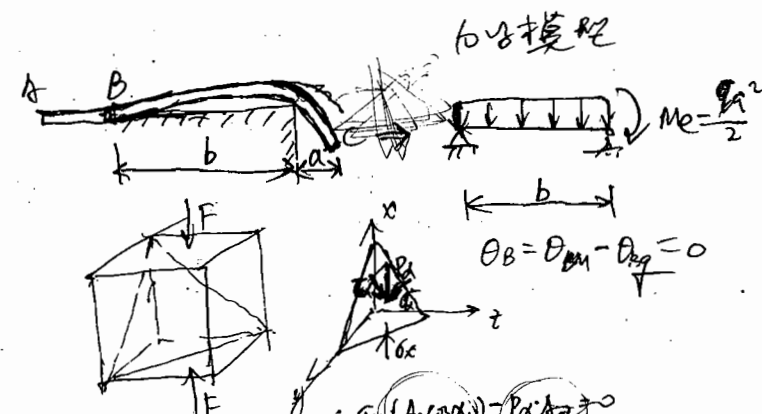 力学模型
A
B
C
b
a
Me=qa²/2
b
θ_B=θ_BM-θ_Bq=0
F
x
Pα
z
σx
F
y